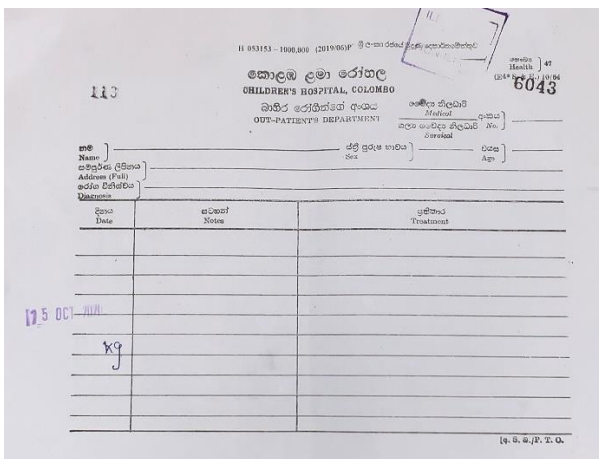 H 053153 - 1000,000 (2019/05)P ශ්‍රී ලංකා රජයේ මුද්‍රණ දෙපාර්තමේන්තුව
සෞඛ්‍ය
Health 47
6043
113
කොළඹ ළමා රෝහල
CHILDREN'S HOSPITAL, COLOMBO
බාහිර රෝගීන්ගේ අංශය
OUT-PATIENT'S DEPARTMENT
වෛද්‍ය නිලධාරි
Medical
ශල්‍ය වෛද්‍ය නිලධාරි
Surgical
අංකය
No.
නම
Name
ස්ත්‍රී පුරුෂ භාවය
Sex
වයස
Age
සම්පූර්ණ ලිපිනය
Address (Full)
රෝග විනිශ්චය
Diagnosis
දිනය සටහන් ප්‍රතිකාර
Date Notes Treatment
5 OCT
kg
P. T. O.